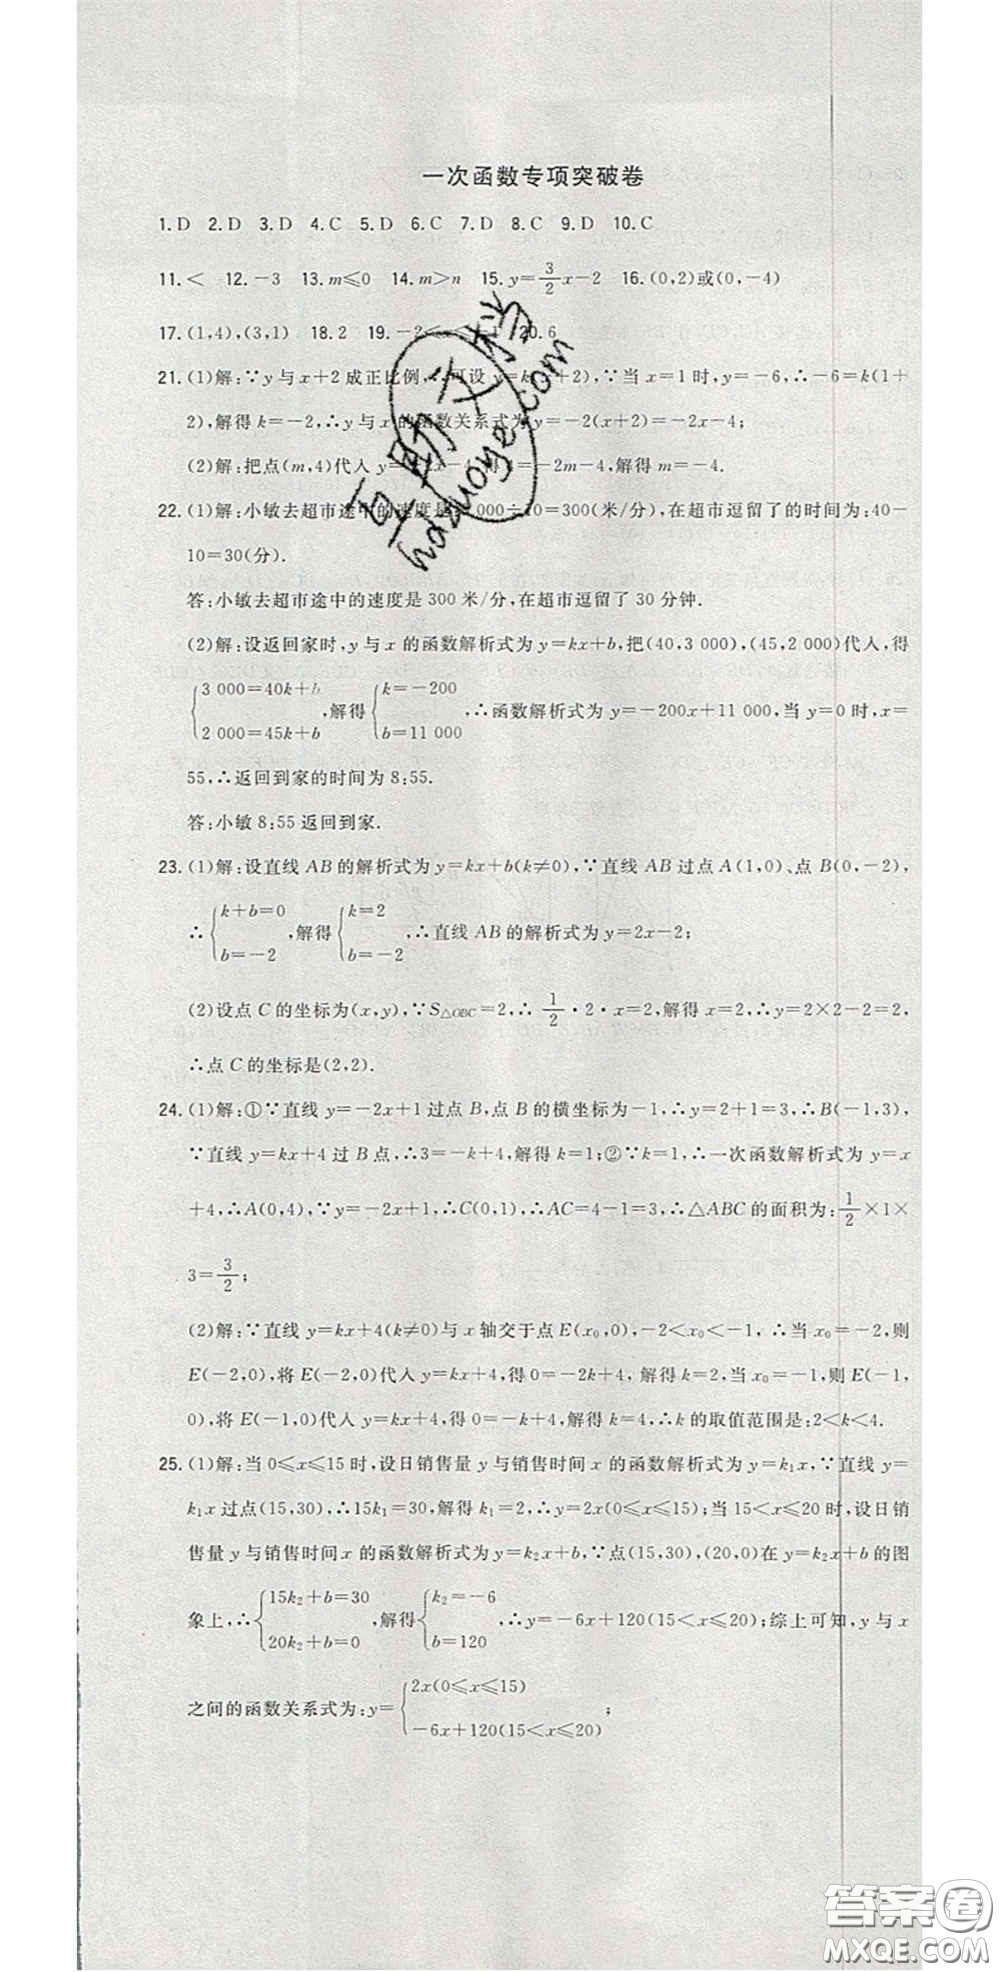 一次函数专项突破卷
1.D 2.D 3.D 4.C 5.D 6.C 7.D 8.C 9.D 10.C
11.< 12.-3 13.m≤0 14.m>n 15.y=3/2x-2 16.(0,2)或(0,-4)
17.(1,4),(3,1) 18.2 19.-2< 20.6
21.(1)解:∵y与x+2成正比例,∴可设y=k(x+2),∵当x=1时,y=-6,∴-6=k(1+
2),解得k=-2,∴y与x的函数关系式为y=-2(x+2)=-2x-4;
(2)解:把点(m,4)代入y=-2x-4,得4=-2m-4,解得m=-4.
22.(1)解:小敏去超市途中的速度是:3 000÷10=300(米/分),在超市逗留了的时间为:40-
10=30(分).
答:小敏去超市途中的速度是300米/分,在超市逗留了30分钟.
(2)解:设返回家时,y与x的函数解析式为y=kx+b,把(40,3 000),(45,2 000)代入,得
{3 000=40k+b 2 000=45k+b,解得{k=-200 b=11 000,∴函数解析式为y=-200x+11 000,当y=0时,x=
55,∴返回到家的时间为8:55.
答:小敏8:55返回到家.
23.(1)解:设直线AB的解析式为y=kx+b(k≠0),∵直线AB过点A(1,0)、点B(0,-2),
∴{k+b=0 b=-2,解得{k=2 b=-2,∴直线AB的解析式为y=2x-2;
(2)设点C的坐标为(x,y),∵S△OBC=2,∴1/2·2·x=2,解得x=2,∴y=2×2-2=2,
∴点C的坐标是(2,2).
24.(1)解:①∵直线y=-2x+1过点B,点B的横坐标为-1,∴y=2+1=3,∴B(-1,3),
∵直线y=kx+4过B点,∴3=-k+4,解得k=1;②∵k=1,∴一次函数解析式为y=x
+4,∴A(0,4),∵y=-2x+1,∴C(0,1),∴AC=4-1=3,∴△ABC的面积为:1/2×1×
3=3/2;
(2)解:∵直线y=kx+4(k≠0)与x轴交于点E(x₀,0),-2<x₀<-1,∴当x₀=-2,则
E(-2,0),将E(-2,0)代入y=kx+4,得0=-2k+4,解得k=2,当x₀=-1,则E(-1,
0),将E(-1,0)代入y=kx+4,得0=-k+4,解得k=4,∴k的取值范围是:2<k<4.
25.(1)解:当0≤x≤15时,设日销售量y与销售时间x的函数解析式为y=k₁x,∵直线y=
k₁x过点(15,30),∴15k₁=30,解得k₁=2,∴y=2x(0≤x≤15);当15<x≤20时,设日销
售量y与销售时间x的函数解析式为y=k₂x+b,∵点(15,30),(20,0)在y=k₂x+b的图
象上,∴{15k₂+b=30 20k₂+b=0,解得{k₂=-6 b=120,∴y=-6x+120(15<x≤20);综上可知,y与x
之间的函数关系式为:y={2x(0≤x≤15) -6x+120(15<x≤20);
hdzuoye.com
答案圈
MXQE.COM